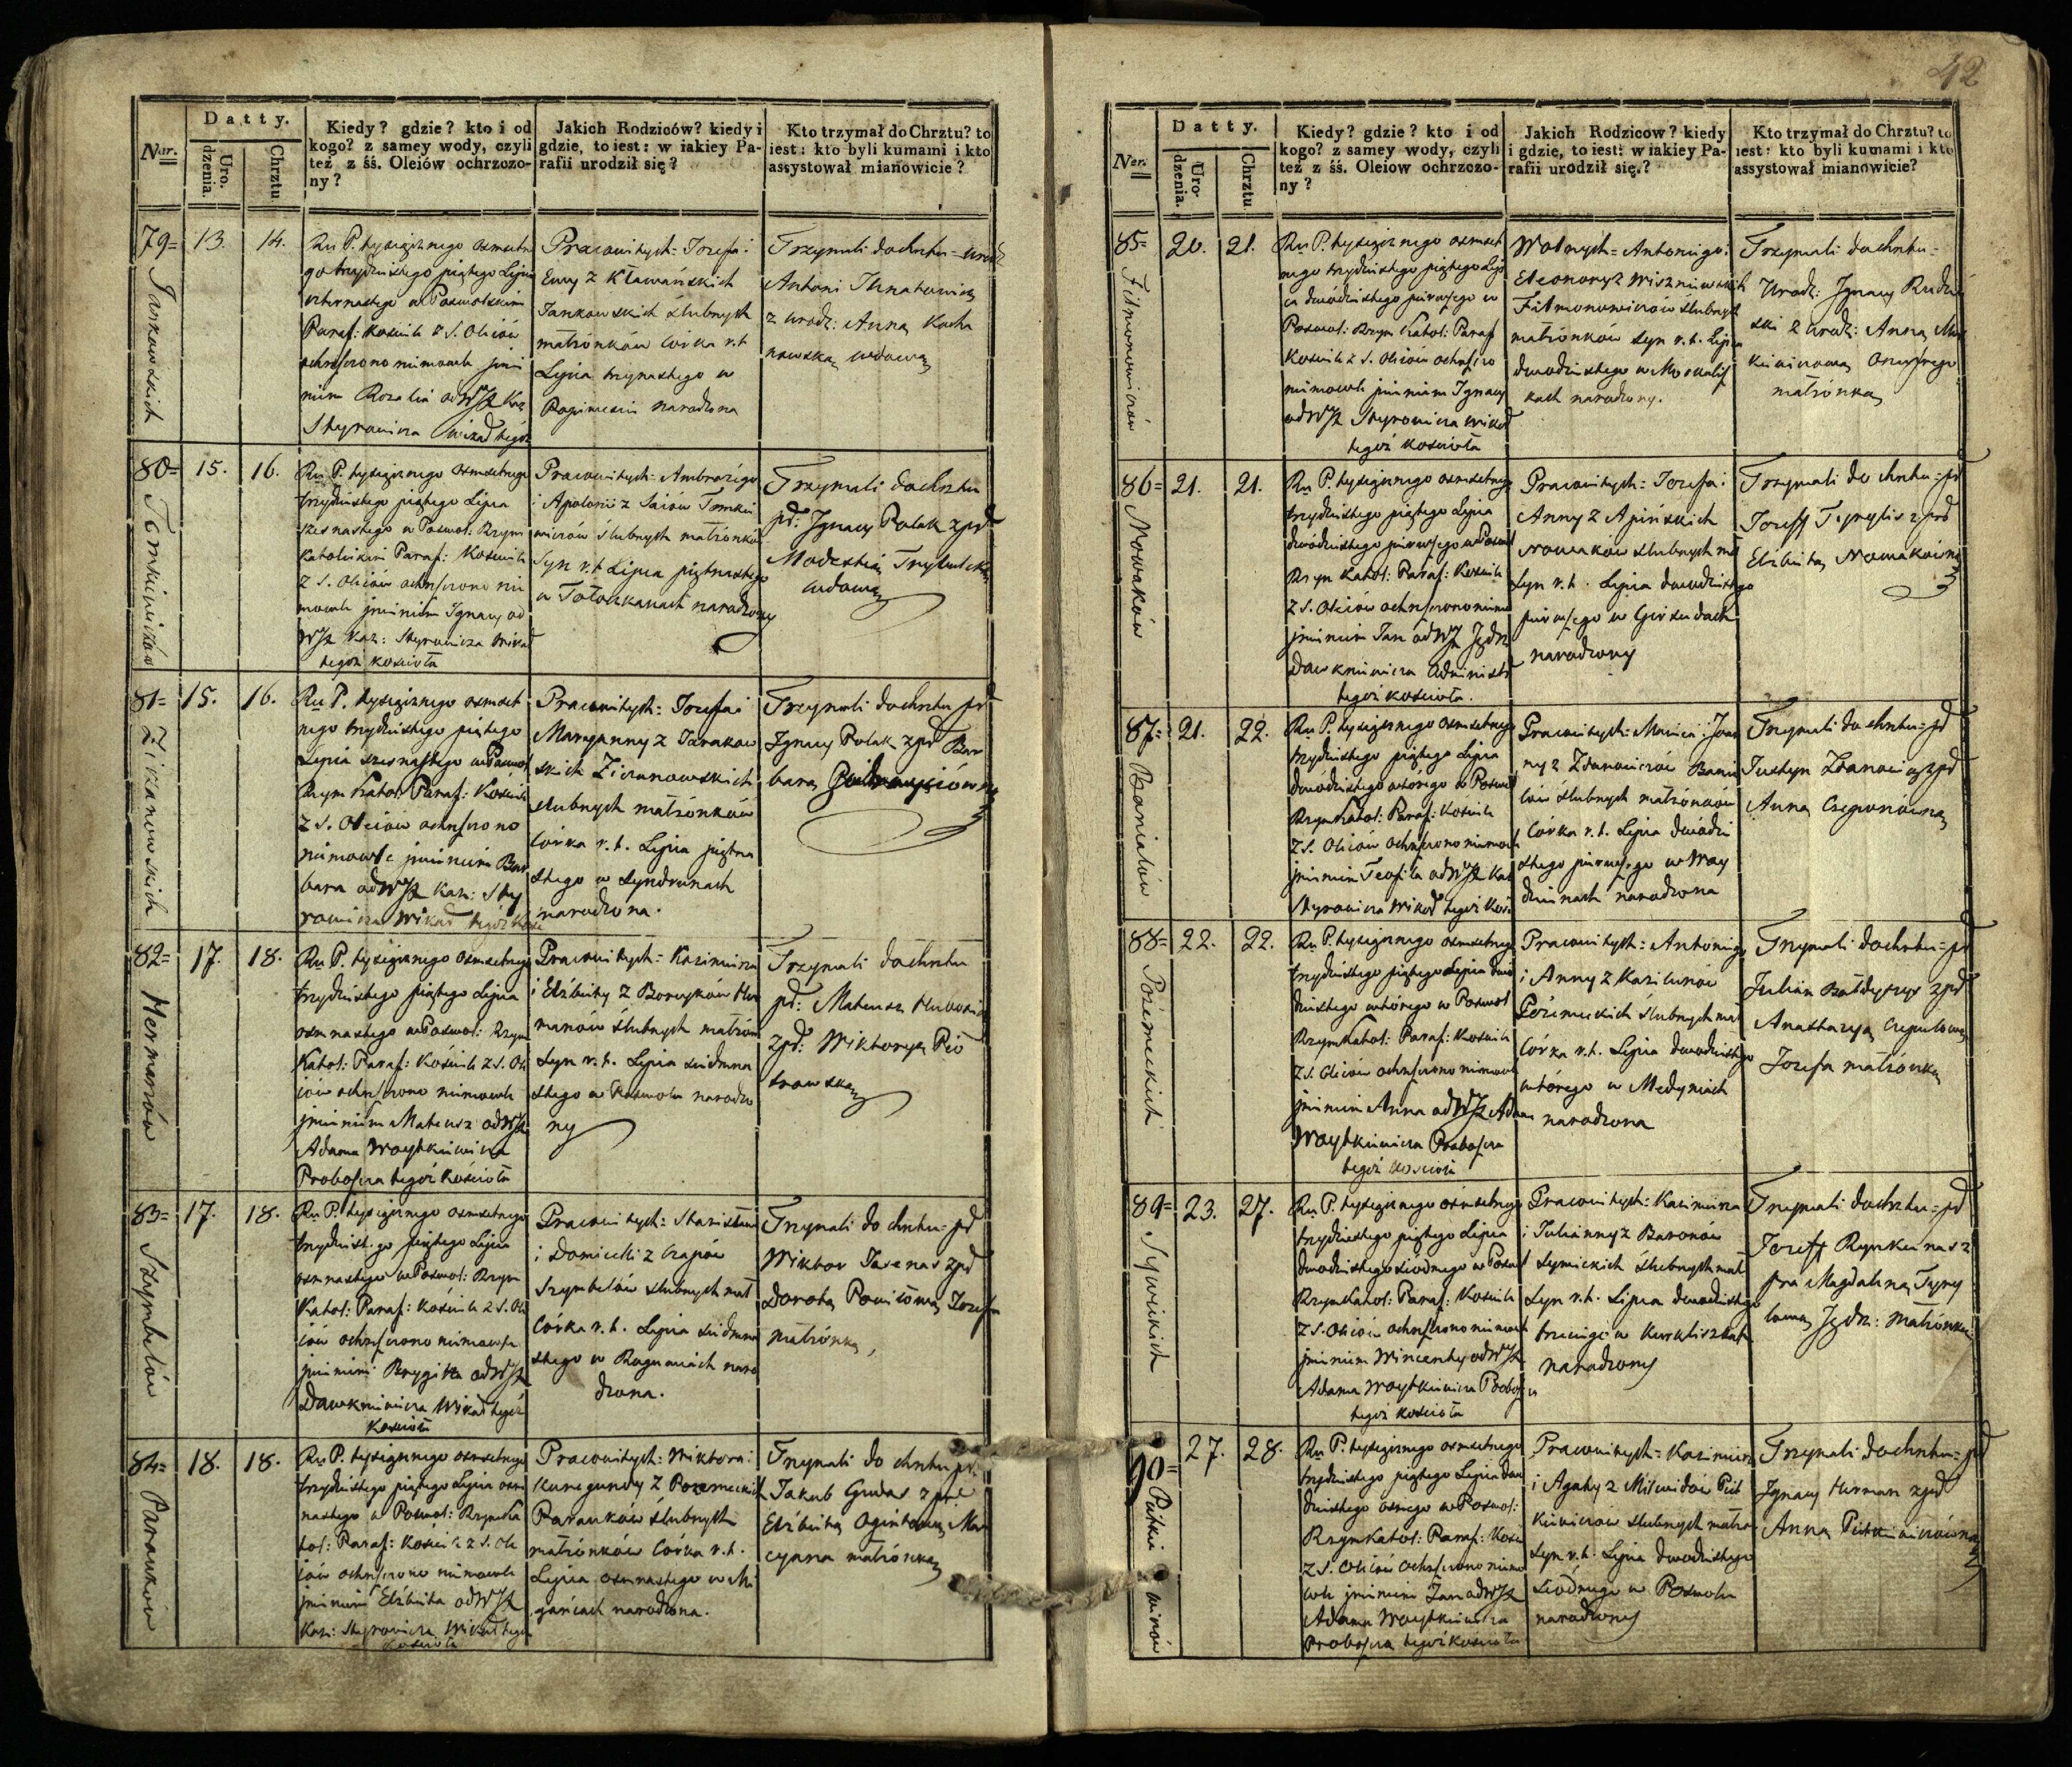 Nar.
Datty.
Uro.
dzenia.
Chrztu
Kiedy? gdzie? kto i od
kogo? z samey wody, czyli
też z śś. Oleiów ochrzczo-
ny?
Jakich Rodziców? kiedy i
gdzie, to iest: w iakiey Pa-
rafii urodził się?
Kto trzymał do Chrztu? to
iest: kto byli kumami i kto
assystował mianowicie?
79=
Jankowskich
13.
14.
Ru P. tysiącznego osmsetne
go trzydziestego piątego Lipca
czternastego w Poswolskim
Paraf: Kościele z S. Oleiów
ochrzczono niemowle jmie
niem Rozalia od WJX Kaz
Styrowicza Wikar tegoż
Pracowitych= Jozefa i
Ewy z Kławańskich
Jankowskich ślubnych
małżonków Córka r. t.
Lipca trzynastego w
narodzona
Trzymali do chrztu= urodz
Antoni Ihnatowicz
z urodz: Anną Kocha
nowską wdową
80=
Tomkiewiczów
15.
16.
Ru P. tysiącznego osmsetnego
trzydziestego piątego Lipca
szesnastego w Poswol: Rzym
katolickim Paraf: Kościele
z S. Oleiów ochrzczono nie
mowle jmieniem Ignacy od
WJX Kaz: Styrowicza Wikar
tegoż kościoła
Pracowitych= Ambrożego
i Apolonii z Saiów Tomkie
wiczów ślubnych małżonków
Syn r. t. Lipca piętnastego
w Tołoczkanach narodzony
Trzymali do chrztu
pd: Ignacy Polak z pd
Modestią
wdową
81=
Zizanowskich
15.
16.
Ru P. tysiącznego osmset
nego trzydziestego piątego
Lipca szesnastego w Poswol
Rzym Katol: Paraf: Kościele
z S. Oleiów ochrzczono
niemowle jmieniem Bar
bara od WJX Kaz: Sty
rowicza Wikar tegoż Kość
Pracowitych= Jozefa i
Maryanny z Tarakow
skich Zizanowskich
ślubnych małżonków
Córka r. t. Lipca piętna
stego w Syndrunach
narodzona.
Trzymali do chrztu pd
Ignacy Polak z pd Bar
barą
82=
Hermanów
17.
18.
Ru P. tysiącznego osmsetnego
trzydziestego piątego Lipca
osmnastego w Poswol: Rzym
Katol: Paraf: Kościele z S. Ole
iów ochrzczono niemowle
jmieniem Mateusz od WJX
Adama Woytkiewicza
Proboszcza tegoż Kościoła
Pracowitych= Kazimierza
i Elżbiety z Borzyków Her
manów ślubnych małżon
Syn r. t. Lipca siedmna
stego w Poswolu narodzo
ny
Trzymali do chrztu
pd: Mateusz
z pd: Wiktoryą Pio
trowską
83=
Szymbelów
17.
18.
Ru P. tysiącznego osmsetnego
trzydziestego piątego Lipca
osmnastego w Poswol: Rzym
Katol: Paraf: Kościele z S. Ole
iów ochrzczono niemowle
jmieniem Brygitta od WJX
Dawkniewicza Wikar tegoż
kościoła
Pracowitych= Stanisława
i Domicelli z Czapów
Szymbelów ślubnych mał
Córka r. t. Lipca siedmna
stego w Raguniach naro
dzona.
Trzymali do chrztu= pd
Wiktor Tarenas z pd
Dorotą Powiłową Jozefa
małżonką,
84=
Parawków
18.
18.
Ru P. tysiącznego osmsetnego
trzydziestego piątego Lipca osm
nastego w Poswol: RzymKa
tol: Paraf: Kościele z S. Ole
iów ochrzczono niemowle
jmieniem Elżbieta od WJX
Kaz: Styrowicza Wikar tegoż
kościoła
Pracowitych= Wiktora i
Kunegundy z Pozemeckich
Parawków ślubnych
małżonków Córka r. t.
Lipca osmnastego w Mi
gańcach narodzona.
Trzymali do chrztu pd:
Jakub Gudas z pd
Elżbietą Ogintową Mar
cyana małżonką
42
Ner.
Datty.
Uro-
dzenia.
Chrztu
Kiedy? gdzie? kto i od
kogo? z samey wody, czyli
też z śś. Oleiow ochrzczo-
ny?
Jakich Rodzicow? kiedy
i gdzie, to iest: w iakiey Pa-
rafii urodził się.?
Kto trzymał do Chrztu? to
iest: kto byli kumami i kto
assystował mianowicie?
85=
Filmonowiczów
20.
21.
Ru P. tysiącznego osmset
nego trzydziestego piątego Lip
ca dwódziestego pierwszego w
Poswol: Rzym Katol: Paraf
Kościele z S. Oleiów ochrzczo
niemowle jmieniem Ignacy
od WJX Styrowicza Wikar
tegoż kościoła
Wolnych= Antoniego i
Eleonory z Wiszniewskich
Filmonowiczów ślubnych
małżonków Syn r. t. Lipca
dwodziestego w Moskalisz
kach narodzony.
Trzymali do chrztu=
Urodz: Ignacy Rudzie
ski z urodz: Anną
małżonką
86=
Nowaków
21.
21.
Ru P. tysiącznego osmsetnego
trzydziestego piątego Lipca
dwódziestego pierwszego w Poswol
Rzym Katol: Paraf: Kościele
z S. Oleiów ochrzczono niemo
jmieniem Jan od WJX Jędrz
Dawkniewicza Administr
tegoż kościoła.
Pracowitych= Jozefa i
Anny z Apińskich
Nowaków ślubnych mał
Syn r. t. Lipca dwudziestego
pierwszego w Girsudach
narodzony
Trzymali do chrztu= pd
Jozeff z pd
Elżbietą Nowakówną
87=
Banialów
21.
22.
Ru P. tysiącznego osmsetnego
trzydziestego piątego Lipca
dwódziestego wtórego w Poswol
RzymKatol: Paraf: Kościele
z S. Oleiów ochrzczono niemowle
jmieniem Teofila od WJX Kaz
Styrowicza Wikar tegoż Kośc
Pracowitych= Macieia i Joan
ny z Zdanowiczów Bania
lów ślubnych małżonków
Córka r. t. Lipca dwódzie
stego pierwszego w Woy
dzinach narodzona
Trzymali do chrztu= pd
Justyn Zdanowicz z pd
Anną Czeponówną
88=
Pożemeckich
22.
22.
Ru P. tysiącznego osmsetnego
trzydziestego piątego Lipca dwó
dziestego wtórego w Poswol
RzymKatol: Paraf: Kościele
z S. Oleiów ochrzczono niemowle
jmieniem Anna od WJX Adama
Woytkiewicza Proboszcza
tegoż kościoła
Pracowitych= Antoniego
i Anny z Kazilunów
Pożemeckich ślubnych mał
Córka r. t. Lipca dwodziestego
wtórego w Medyniach
narodzona
Trzymali do chrztu= pd
Julian z pd
Anastazyą Czepulową
Jozefa małżonką
89=
Sywickich
23.
27.
Ru P. tysiącznego osmsetnego
trzydziestego piątego Lipca
dwódziestego siodmego w Poswol
RzymKatol: Paraf: Kościele
z S. Oleiów ochrzczono niemowle
jmieniem Wincenty od WJX
Adama Woytkiewicza Probosz
tegoż kościoła
Pracowitych= Kazimierza
i Julianny z Baronów
Sywickich ślubnych mał
Syn r. t. Lipca dwodziestego
trzeciego w Kurkliszkach
narodzony
Trzymali do chrztu= pd
Jozeff Rynkunas z
pra Magdaleną
Jędrz: małżonką
90=
Pietkiewiczów
27.
28.
Ru P. tysiącznego osmsetnego
trzydziestego piątego Lipca dwo
dziestego osmego w Poswol:
RzymKatol: Paraf: Kości
z S. Oleiów ochrzczono niemo
wle jmieniem Jan od WJX
Adama Woytkiewicza
Proboszcza tegoż kościoła
Pracowitych= Kazimierza
i Agaty z Milwidów Piet
kiewiczów ślubnych małżo
Syn r. t. Lipca dwodziestego
siodmego w Poswolu
narodzony
Trzymali do chrztu= pd
Ignacy Herman z pd
Anną Pietkiewiczówną